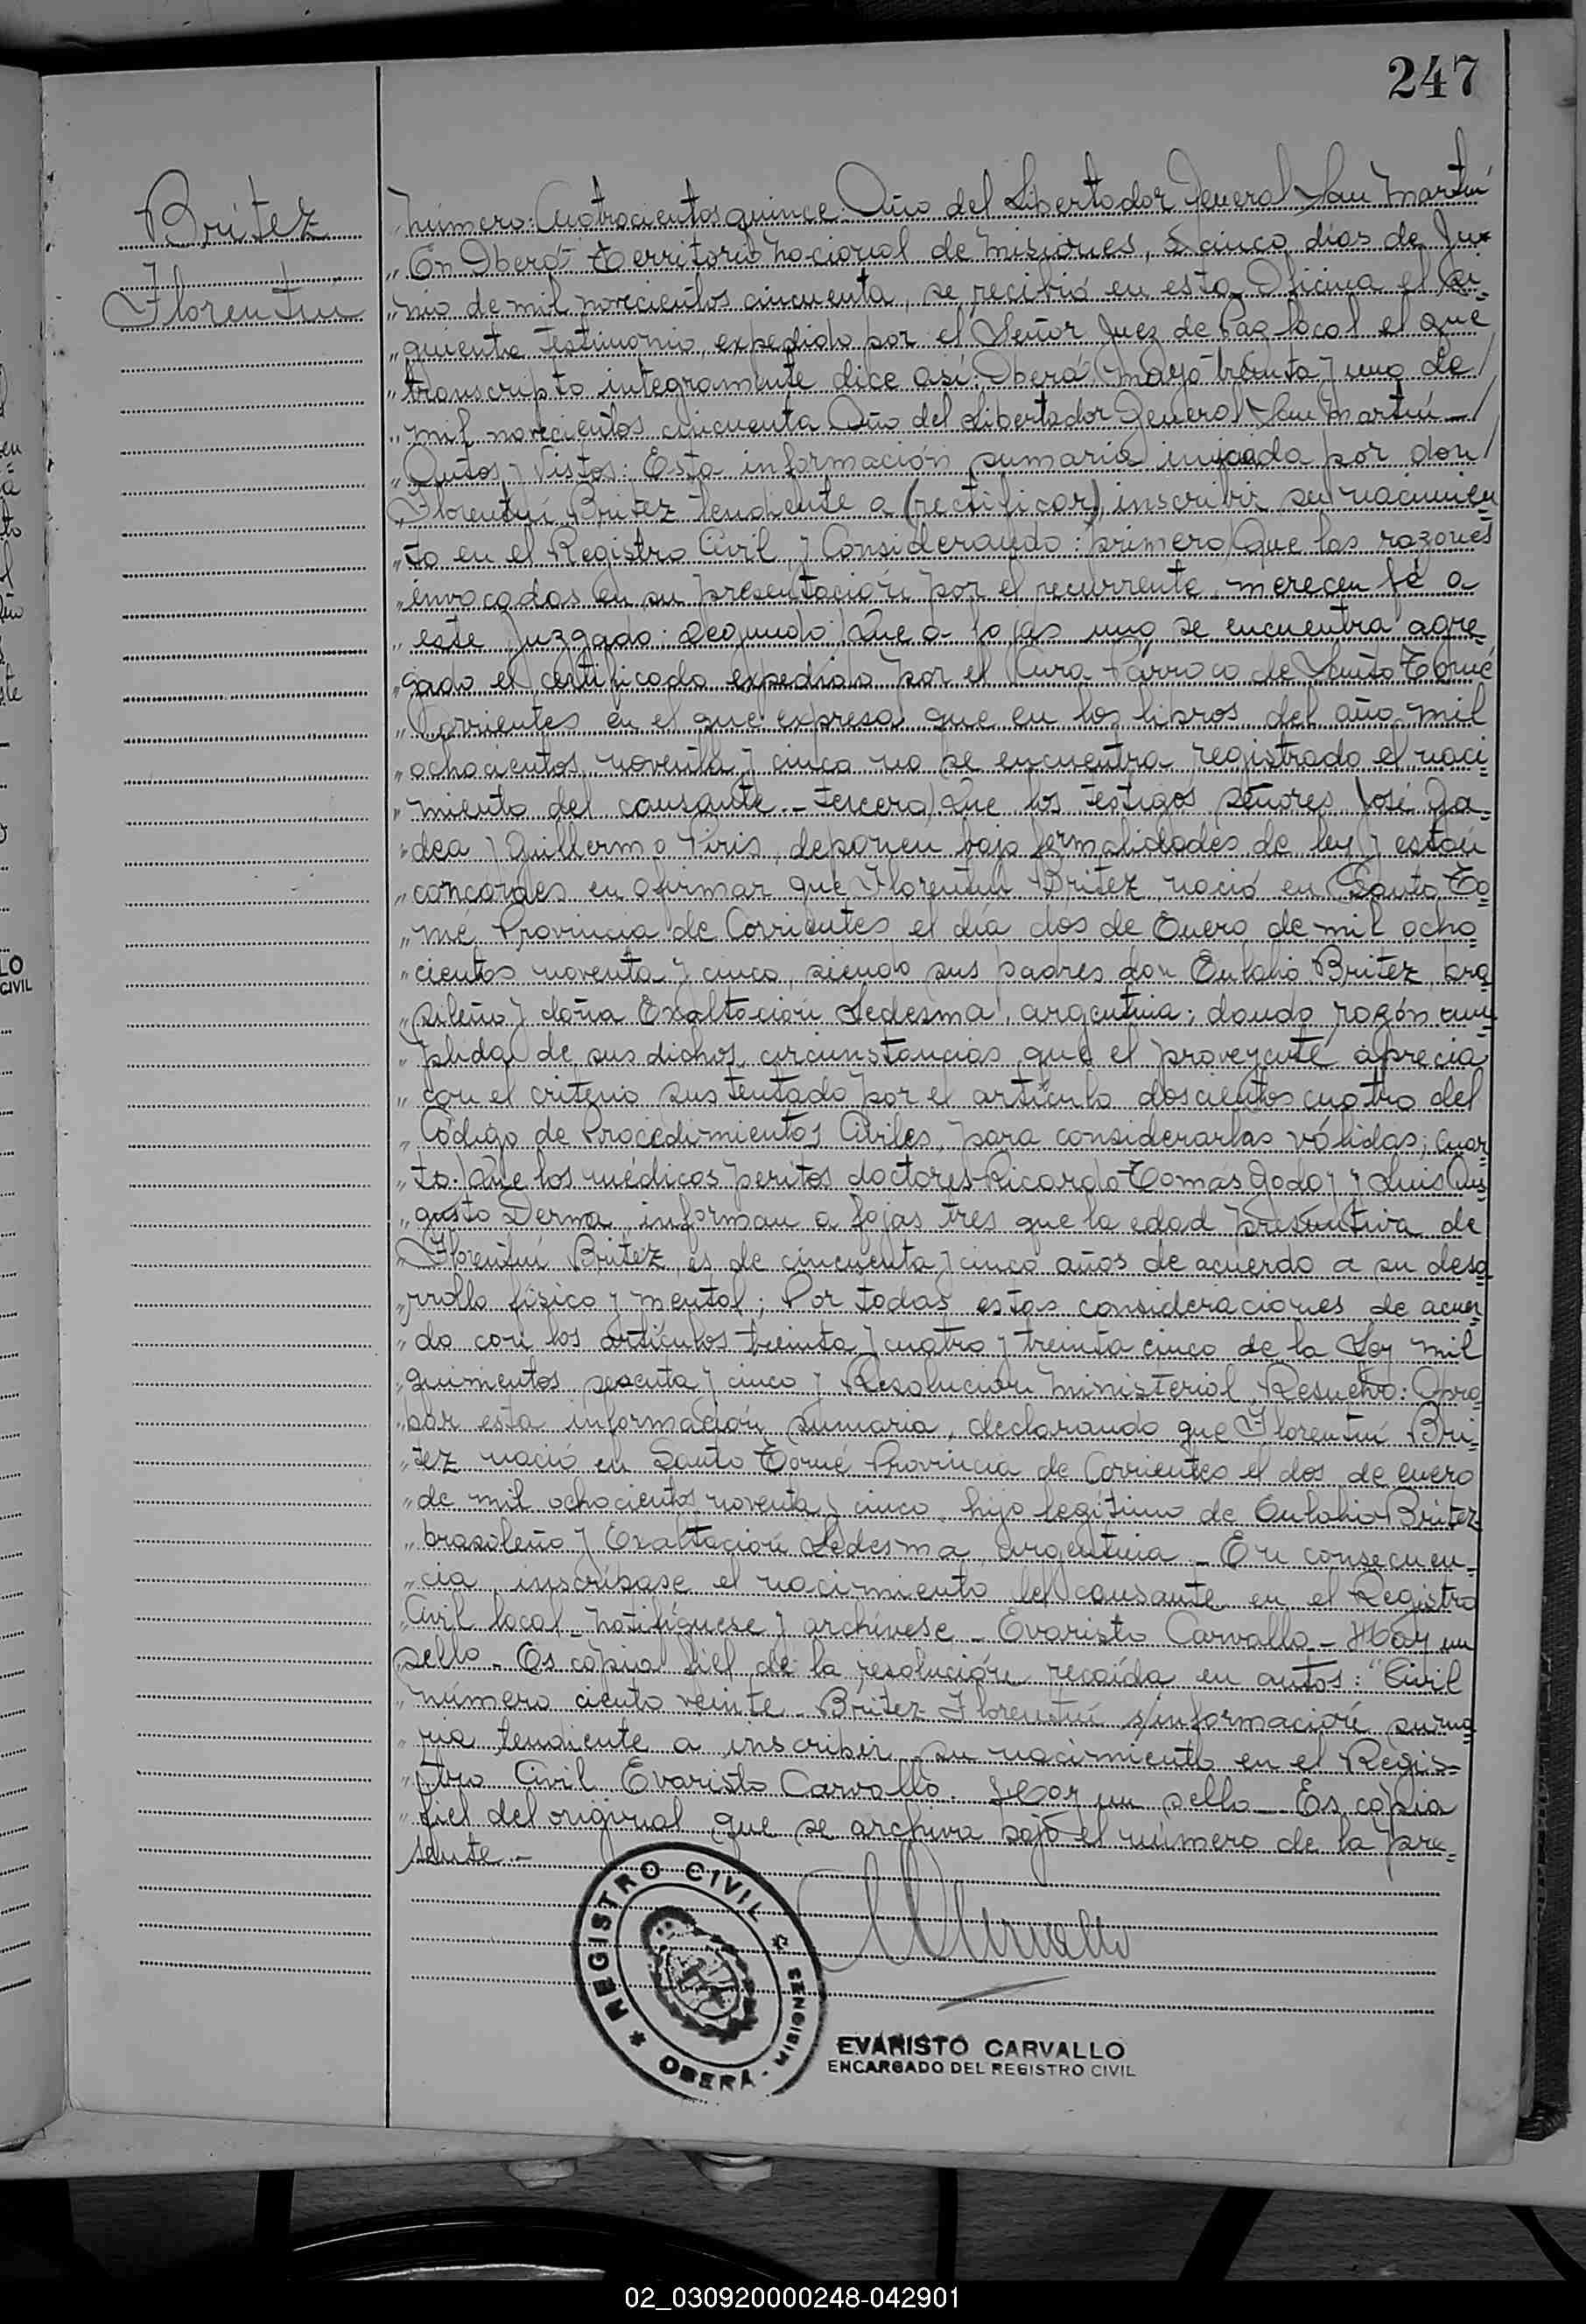 247
Britez
Florentín
Número: Cuatrocientos quince. Año del Libertador General San Martín
En Oberá Territorio Nacional de Misiones, a cinco días de Ju-
nio de mil novecientos cincuenta, se recibió en esta Oficina el si-
guiente testimonio, expedido por el Señor Juez de Paz local el que
transcripto integramente dice así: Oberá mayo treinta y uno de
mil novecientos cincuenta Año del Libertador General San Martín -
Autos y Vistos: Esta información sumaria iniciada por don
Florentín Britez tendiente a (rectificar) inscribir su nacimien
to en el Registro Civil, y Considerando: primero) Que las razones
invocadas en su presentación por el recurrente, merecen fé a
este Juzgado: segundo) Que a fojas uno se encuentra agre-
gado el certificado expedido por el Cura Párroco de Santo Tomé
Corrientes en el que expresa que en los libros del año mil
ochocientos noventa y cinco no se encuentra registrado el naci-
miento del causante.- tercero) Que los testigos señores José Ga-
dea y Guillermo Piris, deponen bajo formalidades de ley y están
concordes en afirmar que Florentín Britez nació en Santo To
mé, Provincia de Corrientes el día dos de Enero de mil ocho
cientos noventa y cinco, siendo sus padres don Eulalio Britez, bra
sileño y doña Exaltación Ledesma, argentina; dando razón cum
plida de sus dichos, circunstancias que el proveyente aprecia
con el criterio sustentado por el artículo doscientos cuatro del
Código de Procedimientos Civiles, para considerarlas válidas; Cuar
to) Que los médicos peritos doctores Ricardo Tomás Godoy y Luis Au
gusto Derna, informan a fojas tres que la edad presuntiva de
Florentín Britez, es de cincuenta y cinco años de acuerdo a su desa
rrollo físico y mental; Por todas estas consideraciones de acuer
do con los artículos treinta y cuatro y treinta cinco de la Ley mil
quinientos sesenta y cinco y Resolución Ministerial Resuelvo: Apro
bar esta información sumaria, declarando que Florentín Bri-
tez nació en Santo Tomé Provincia de Corrientes el dos de enero
de mil ochocientos noventa y cinco hijo legítimo de Eulalio Britez
brasoleño y Exaltación Ledesma, argentina - En consecuen-
cia, inscríbase el nacimiento del causante en el Registro
Civil local - Notifíquese y archívese - Evaristo Carvallo - Hay un
sello - Es copia fiel de la resolución recaída en autos: "Civil
número ciento veinte - Britez Florentín s/información suma
ria tendiente a inscribir su nacimiento en el Regis-
tro Civil Evaristo Carvallo. Hay un sello - Es copia
fiel del original que se archiva bajo el número de la pre-
sente.-
REGISTRO CIVIL
OBERA - MISIONES
EVARISTO CARVALLO
ENCARGADO DEL REGISTRO CIVIL
02_030920000248-042901